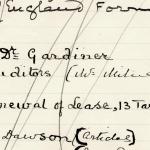 England Form
Dr Gardiner
uditors (Mr Milne
newal of Lease, 13 Tar
Dawson (Articles)